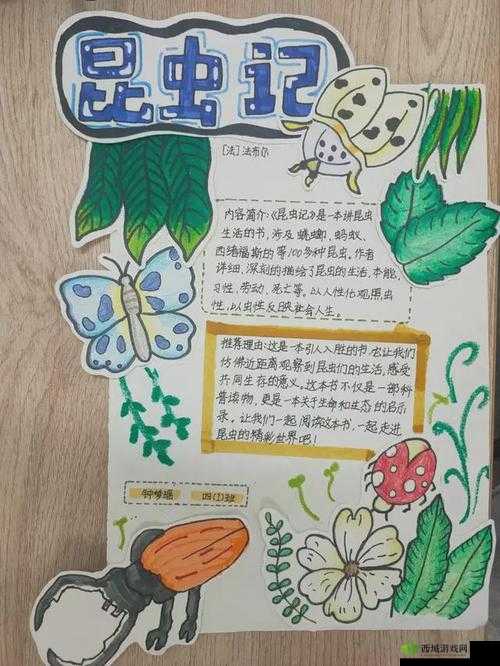 昆虫记
[法]法布尔
内容简介:《昆虫记》是一本讲昆虫
生活的书,涉及蜣螂、蚂蚁、
西绪福斯的等100多种昆虫。作者
详细、深刻的描绘了昆虫的生活、本能、
习性、劳动、死亡等。以人性化观照虫
性,以虫性反映社会人生。
推荐理由:这是一本引人入胜的书,它让我们
仿佛近距离观察到昆虫们的生活,感受
共同生存的意义。这本书不仅是一部科
普读物,更是一本关于生命和生态的启示
录。让我们一起阅读这本书,一起走进
昆虫的精彩世界吧!
钟梦瑶 四(1)班
西城游戏网